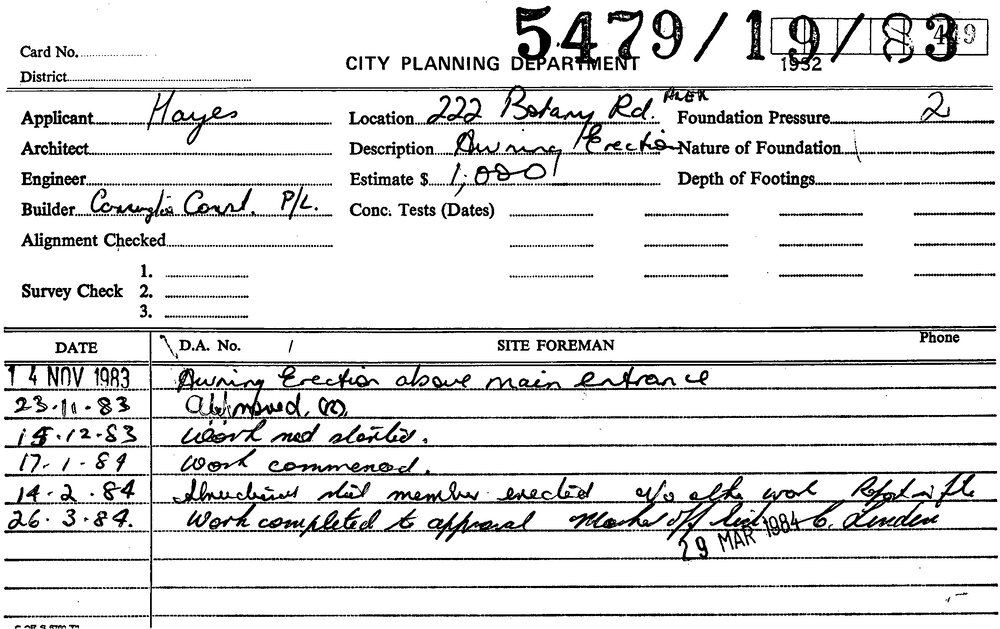 5479/19/83
Card No.
419
CITY PLANNING DEPARTMENT 1932
District
Applicant Hayes Location 222 Botany Rd. ALEX Foundation Pressure 2
Architect Description Awning Erection Nature of Foundation
Engineer Estimate $ 1,000 Depth of Footings
Builder Const. P/L. Conc. Tests (Dates)
Alignment Checked
1.
Survey Check 2.
3.
DATE D.A. No. / SITE FOREMAN Phone
14 NOV 1983 Awning Erection above main entrance
23.11.83 Approved.
15.12.83 Work not started.
17.1.84 Work commenced.
14.2.84 member erected work Report in file
26.3.84. Work completed to approval Marked off list C. Linden
29 MAR 1984